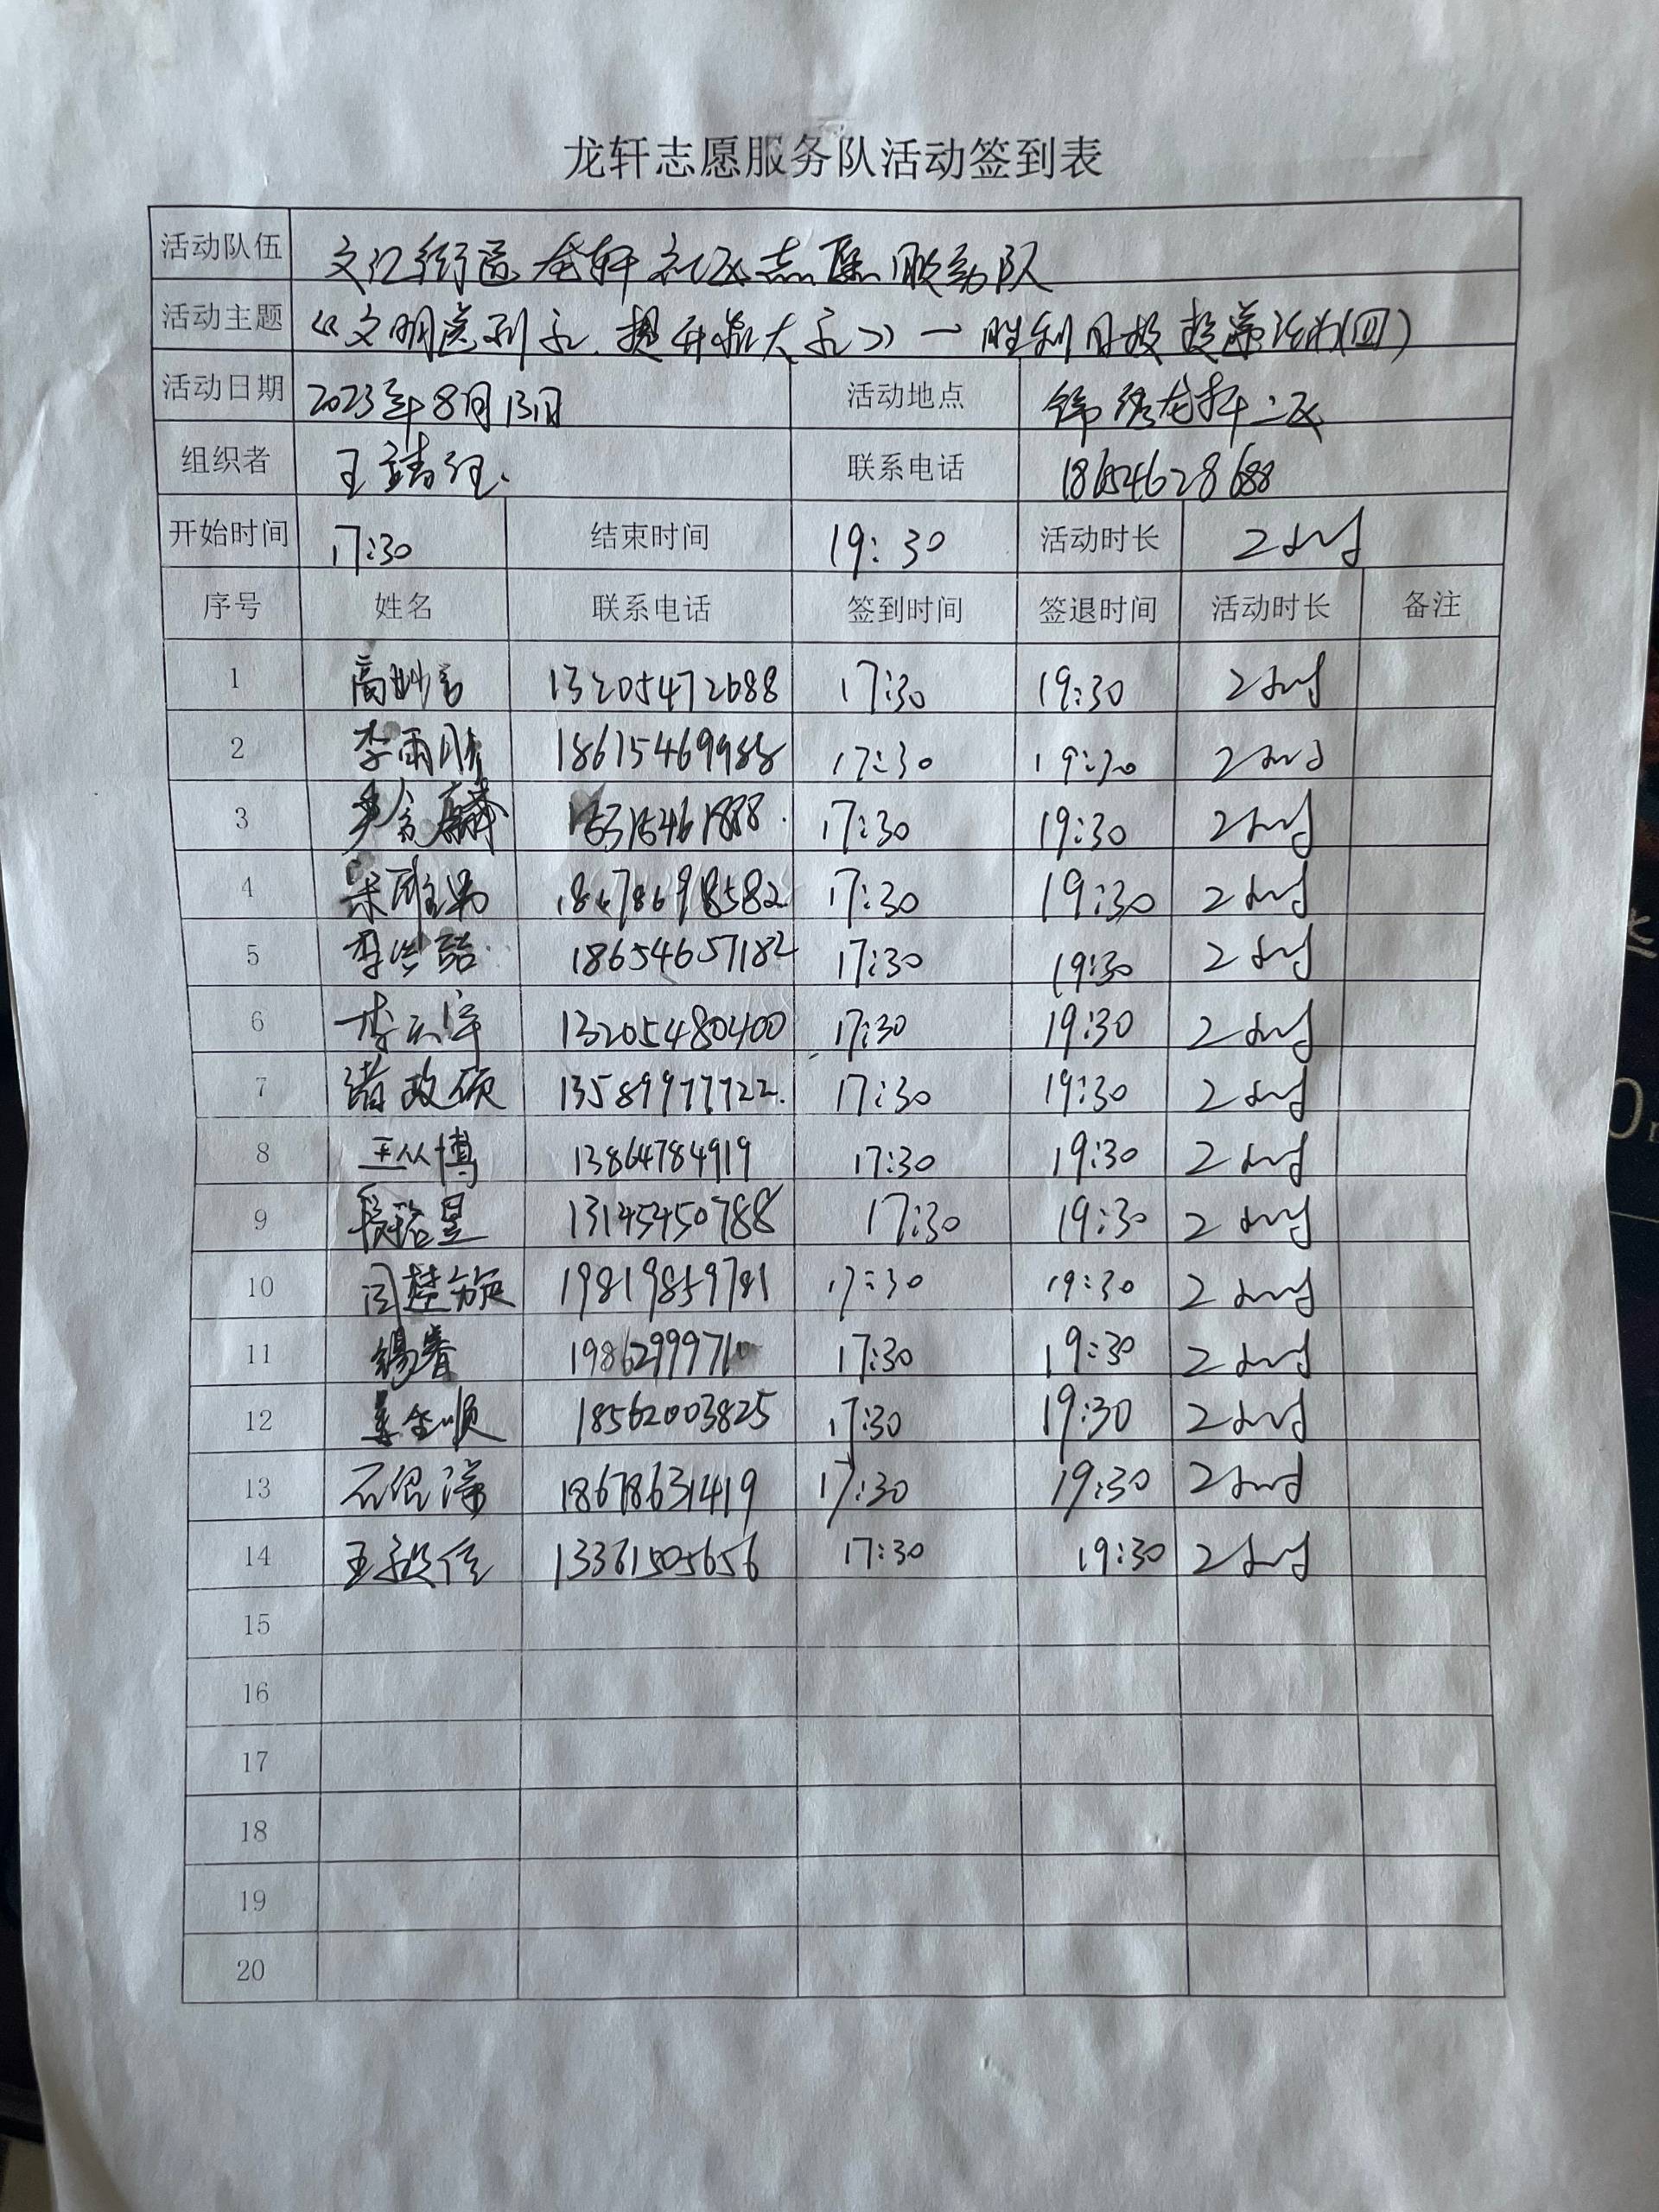 龙轩志愿服务队活动签到表
活动队伍 文汇街道龙轩社区志愿服务队
活动主题 《文明 提升 》一胜利日报投递活动(四)
活动日期 2023年8月13日 活动地点 锦绣龙轩二区
组织者 王靖 联系电话 18654628688
开始时间 17:30 结束时间 19:30 活动时长 2小时
序号 姓名 联系电话 签到时间 签退时间 活动时长 备注
1 高妙言 13205472688 17:30 19:30 2小时
2 李雨 18615469988 17:30 19:30 2小时
3 尹 麟 15315461888 17:30 19:30 2小时
4 宋 18678698582 17:30 19:30 2小时
5 李 18654657182 17:30 19:30 2小时
6 李 13205480400 17:30 19:30 2小时
7 政硕 13589977722 17:30 19:30 2小时
8 王从博 13864784919 17:30 19:30 2小时
9 13145450788 17:30 19:30 2小时
10 闫楚旋 19819859781 17:30 19:30 2小时
11 17:30 19:30 2小时
12 姜金顺 18562003825 17:30 19:30 2小时
13 石 18678631419 17:30 19:30 2小时
14 王 信 13361505656 17:30 19:30 2小时
15
16
17
18
19
20